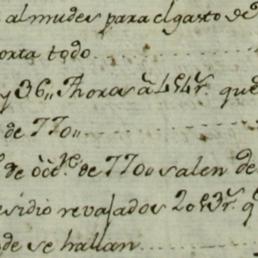 almudes para el gasto de
orta todo
y 36,, Thoros à 454r. que
de 770,,
de occ.he de 7700 salen de
esidio revajados 20e3r. q
de se hallan